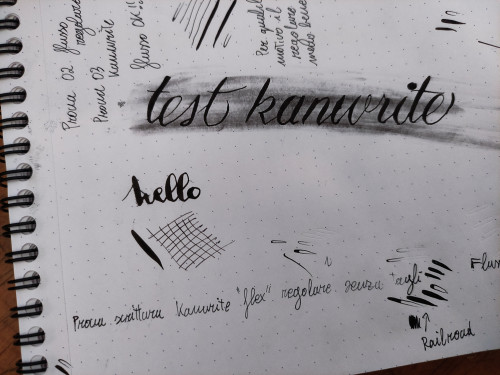 Prova 02 flusso
regolare
Prova 03
Kanwrite
flusso OK!!
Per qualche
motivo il
regolare
test kanwrite
hello
Prova scrittura Kanwrite "flex" regolare senza tagli
Railroad